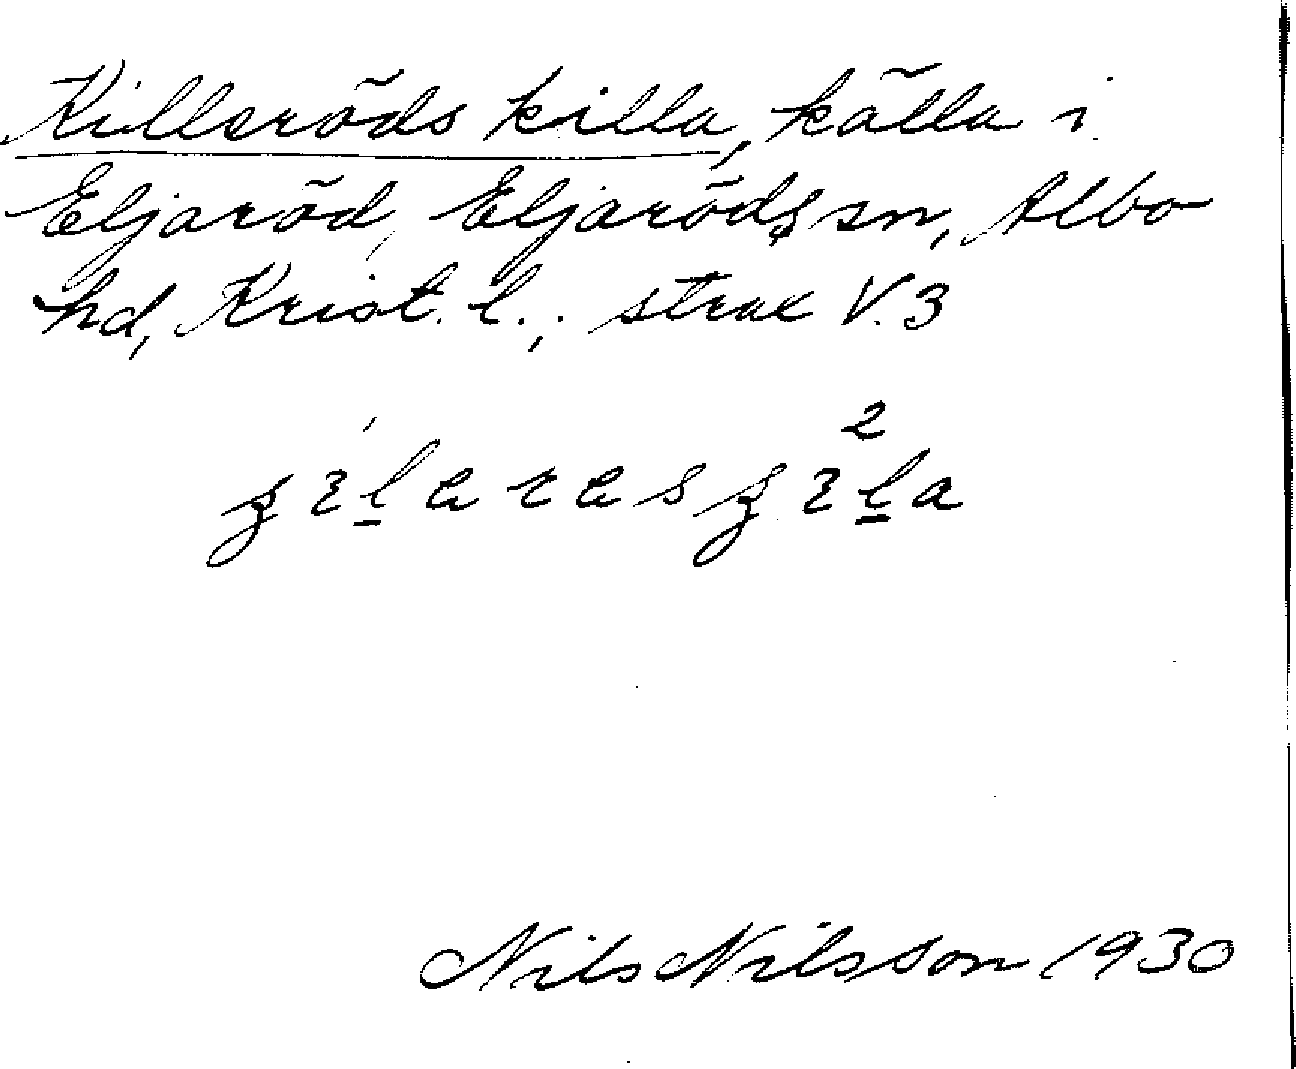 Killeröds killa, källa i
Eljaröd, Eljaröds sn, Albo
hd, Krist. l., strax V. 3
Nils Nilsson 1930